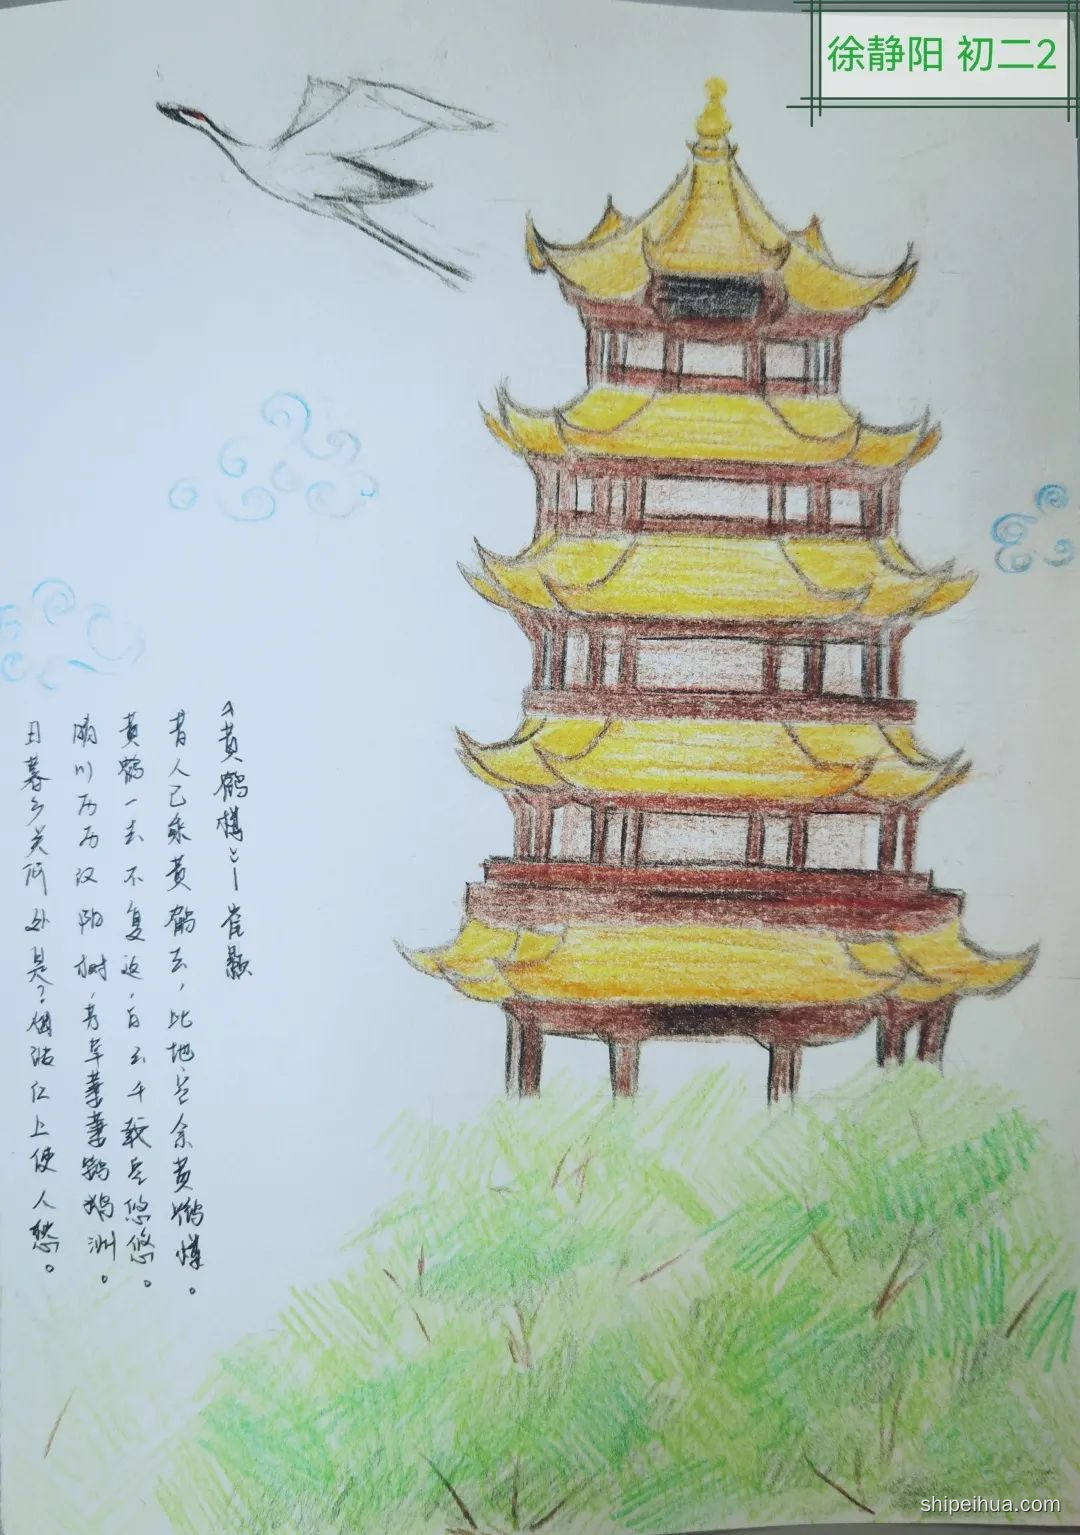 徐静阳 初二2
《黄鹤楼》— 崔颢
昔人已乘黄鹤去，此地空余黄鹤楼。
黄鹤一去不复返，白云千载空悠悠。
晴川历历汉阳树，芳草萋萋鹦鹉洲。
日暮乡关何处是？烟波江上使人愁。
shipeihua.com